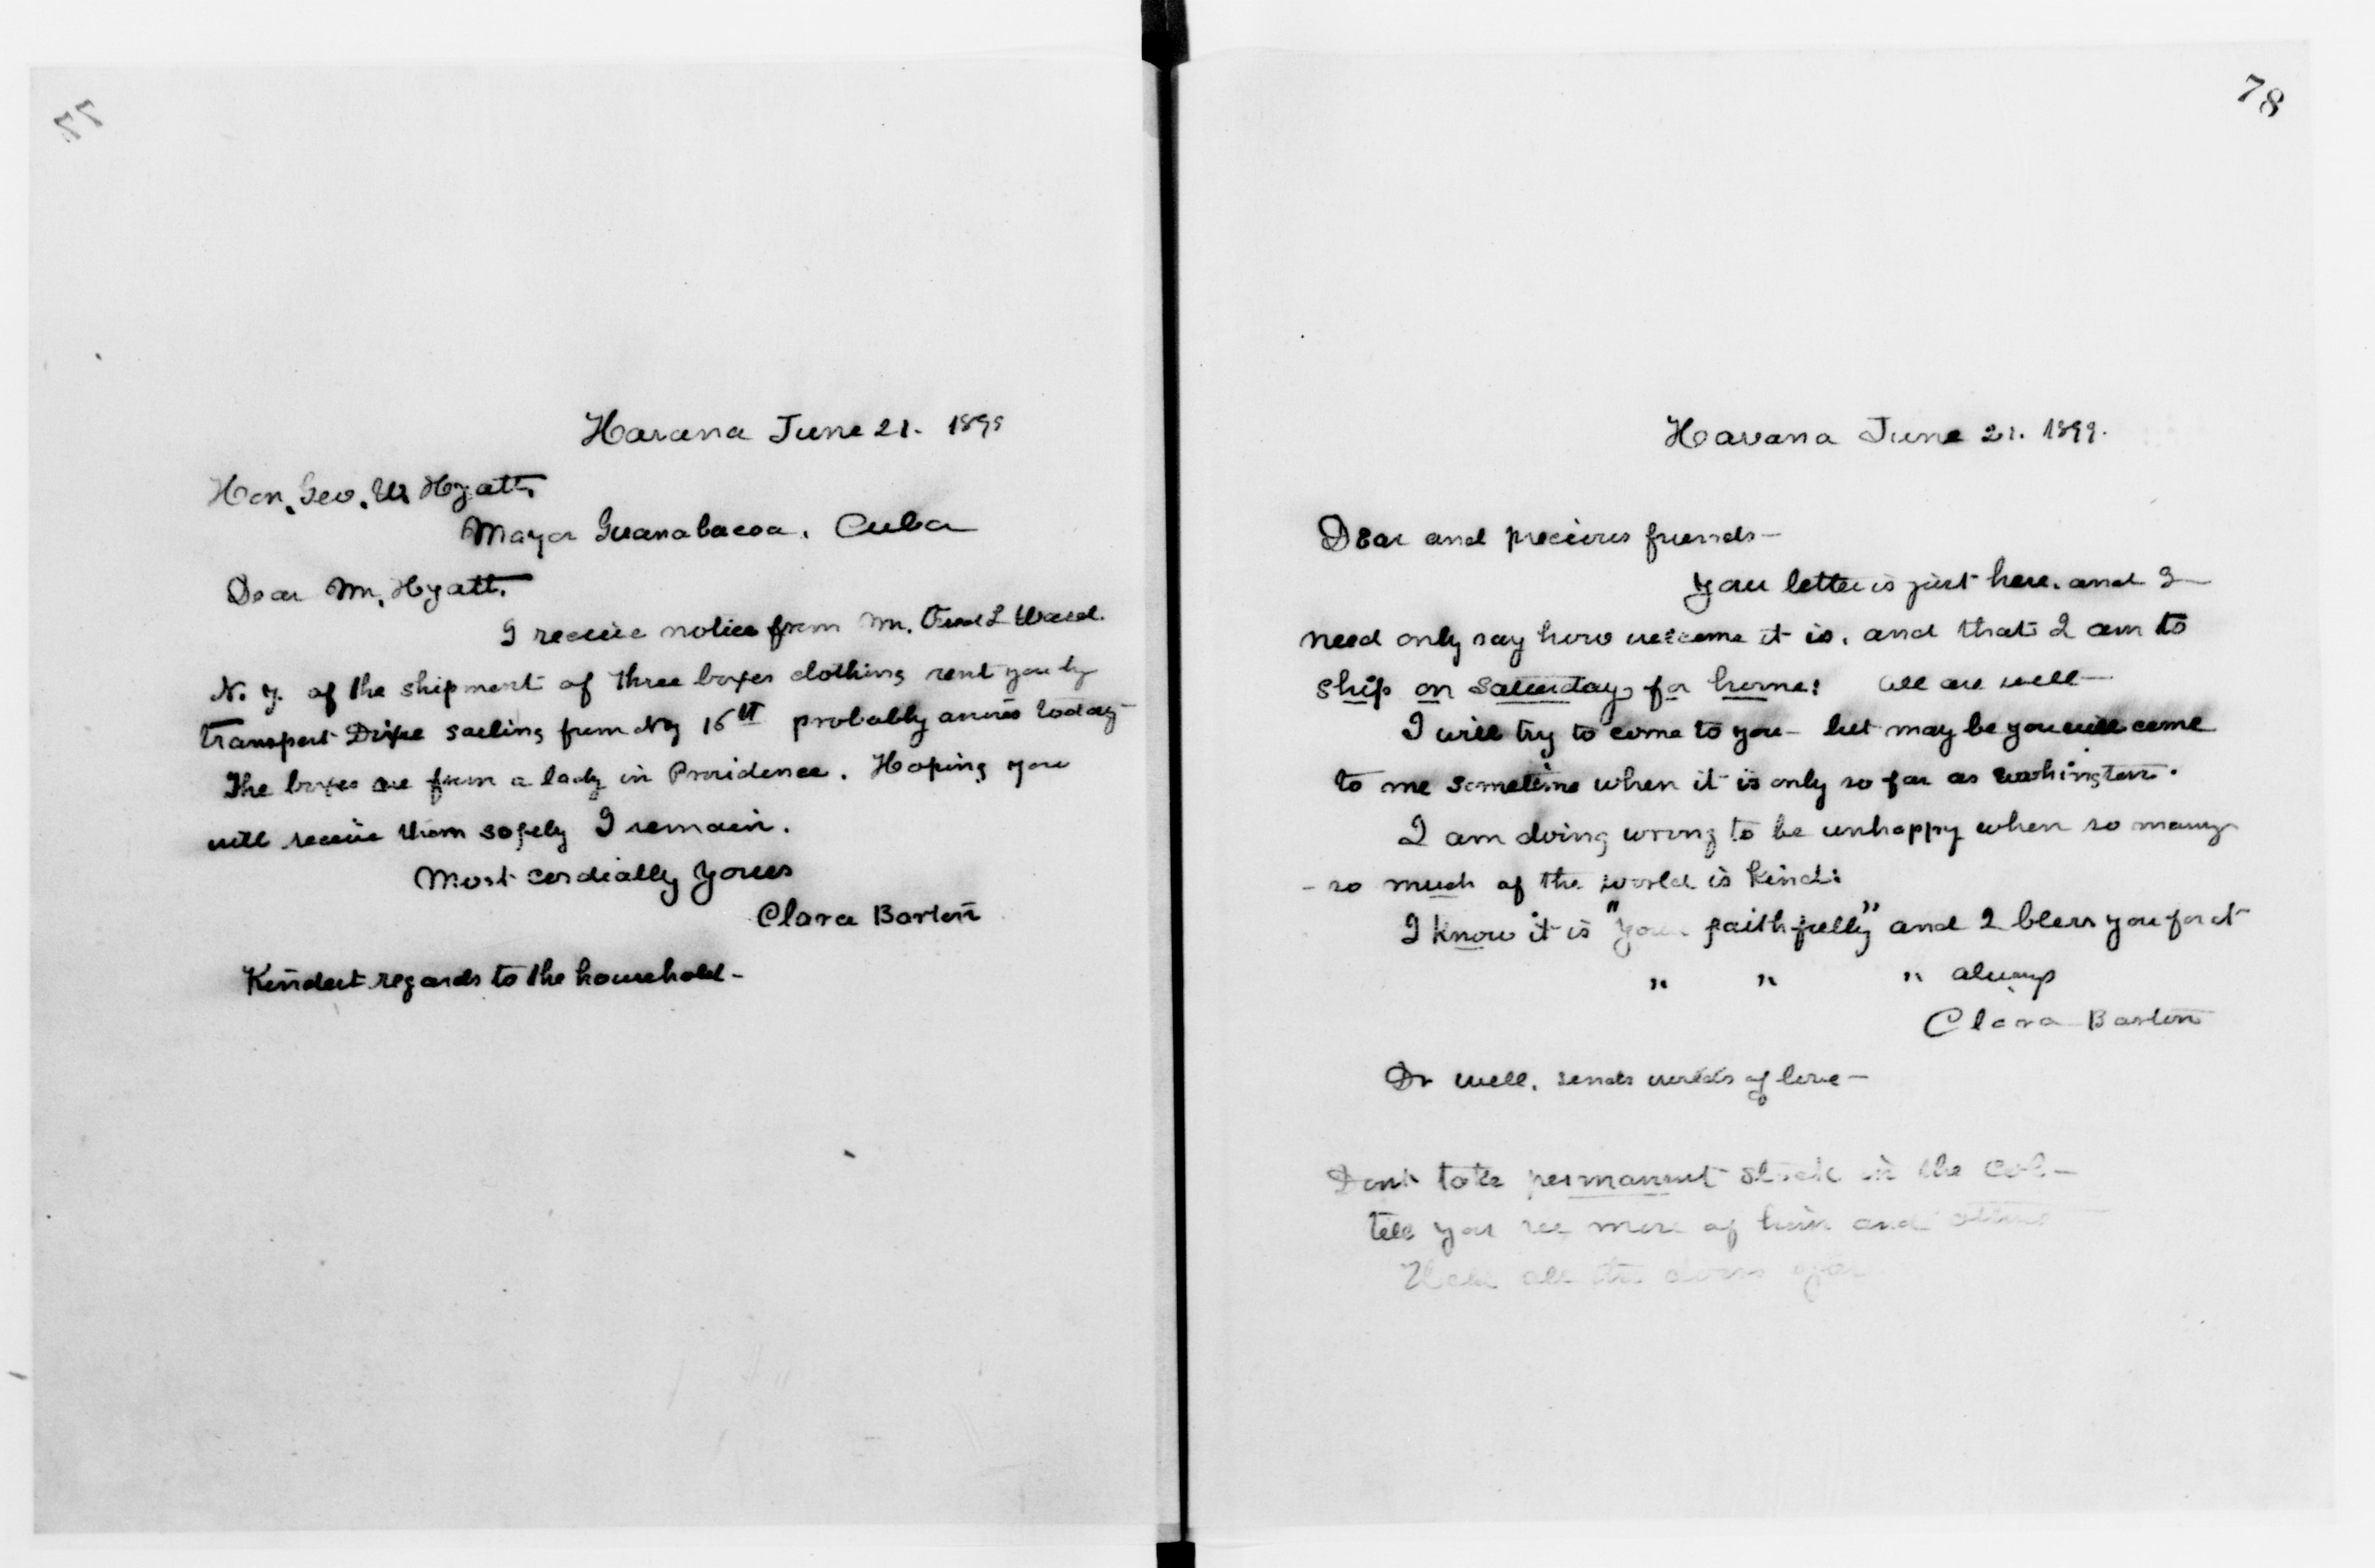 77
Havana June 21. 1899
Hon. Geo. W. Hyatt.
Mayor Guanabacoa. Cuba
Dear Mr. Hyatt.
I receive notice from Mr. Fred L Ward.
N. Y. of the shipment of three boxes clothing sent you by
transport Dixie sailing from NY 15th probably arrives today—
The boxes are from a lady in Providence. Hoping you
will receive them safely I remain.
Most cordially yours
Clara Barton
Kindest regards to the household—
78
Havana June 21. 1899.
Dear and precious friends—
Your letter is just here. and I
need only say how welcome it is. and that I am to
ship on Saturday, for home: All are well—
I will try to come to you— but may be you will come
to me sometime when it is only so far as Washington.
I am doing wrong to be unhappy when so many
- so much of the world is kind:
I know it is "your faithfully" and I bless you for it
" " " always
Clara Barton
Dr well. sends worlds of love—
Dont take permanent stock in the Col—
till you see more of him and others—
all the